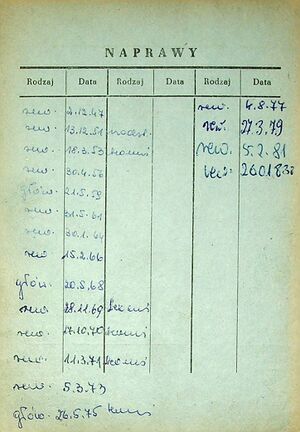 NAPRAWY
Rodzaj Data Rodzaj Data Rodzaj Data
rew. 2.12.47 rew. 4.8.77
rew. 13.12.51 rew. 27.3.79
rew. 18.3.53 rew. 5.2.81
rew. 30.4.56 rew. 26.01.83
główn. 21.5.59
rew. 31.5.61
rew. 30.1.64
rew. 15.2.66
główn. 20.5.68
rew. 28.11.69
rew. 17.10.70
rew. 11.3.71
rew. 5.3.73
główn. 26.5.75